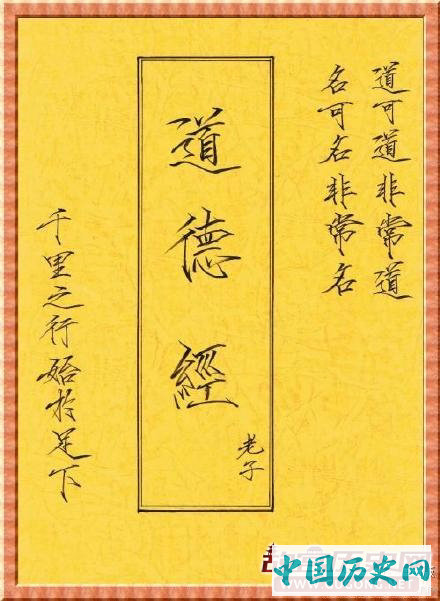 道可道非常道
名可名非常名
道德經
老子
千里之行始於足下
中国历史网